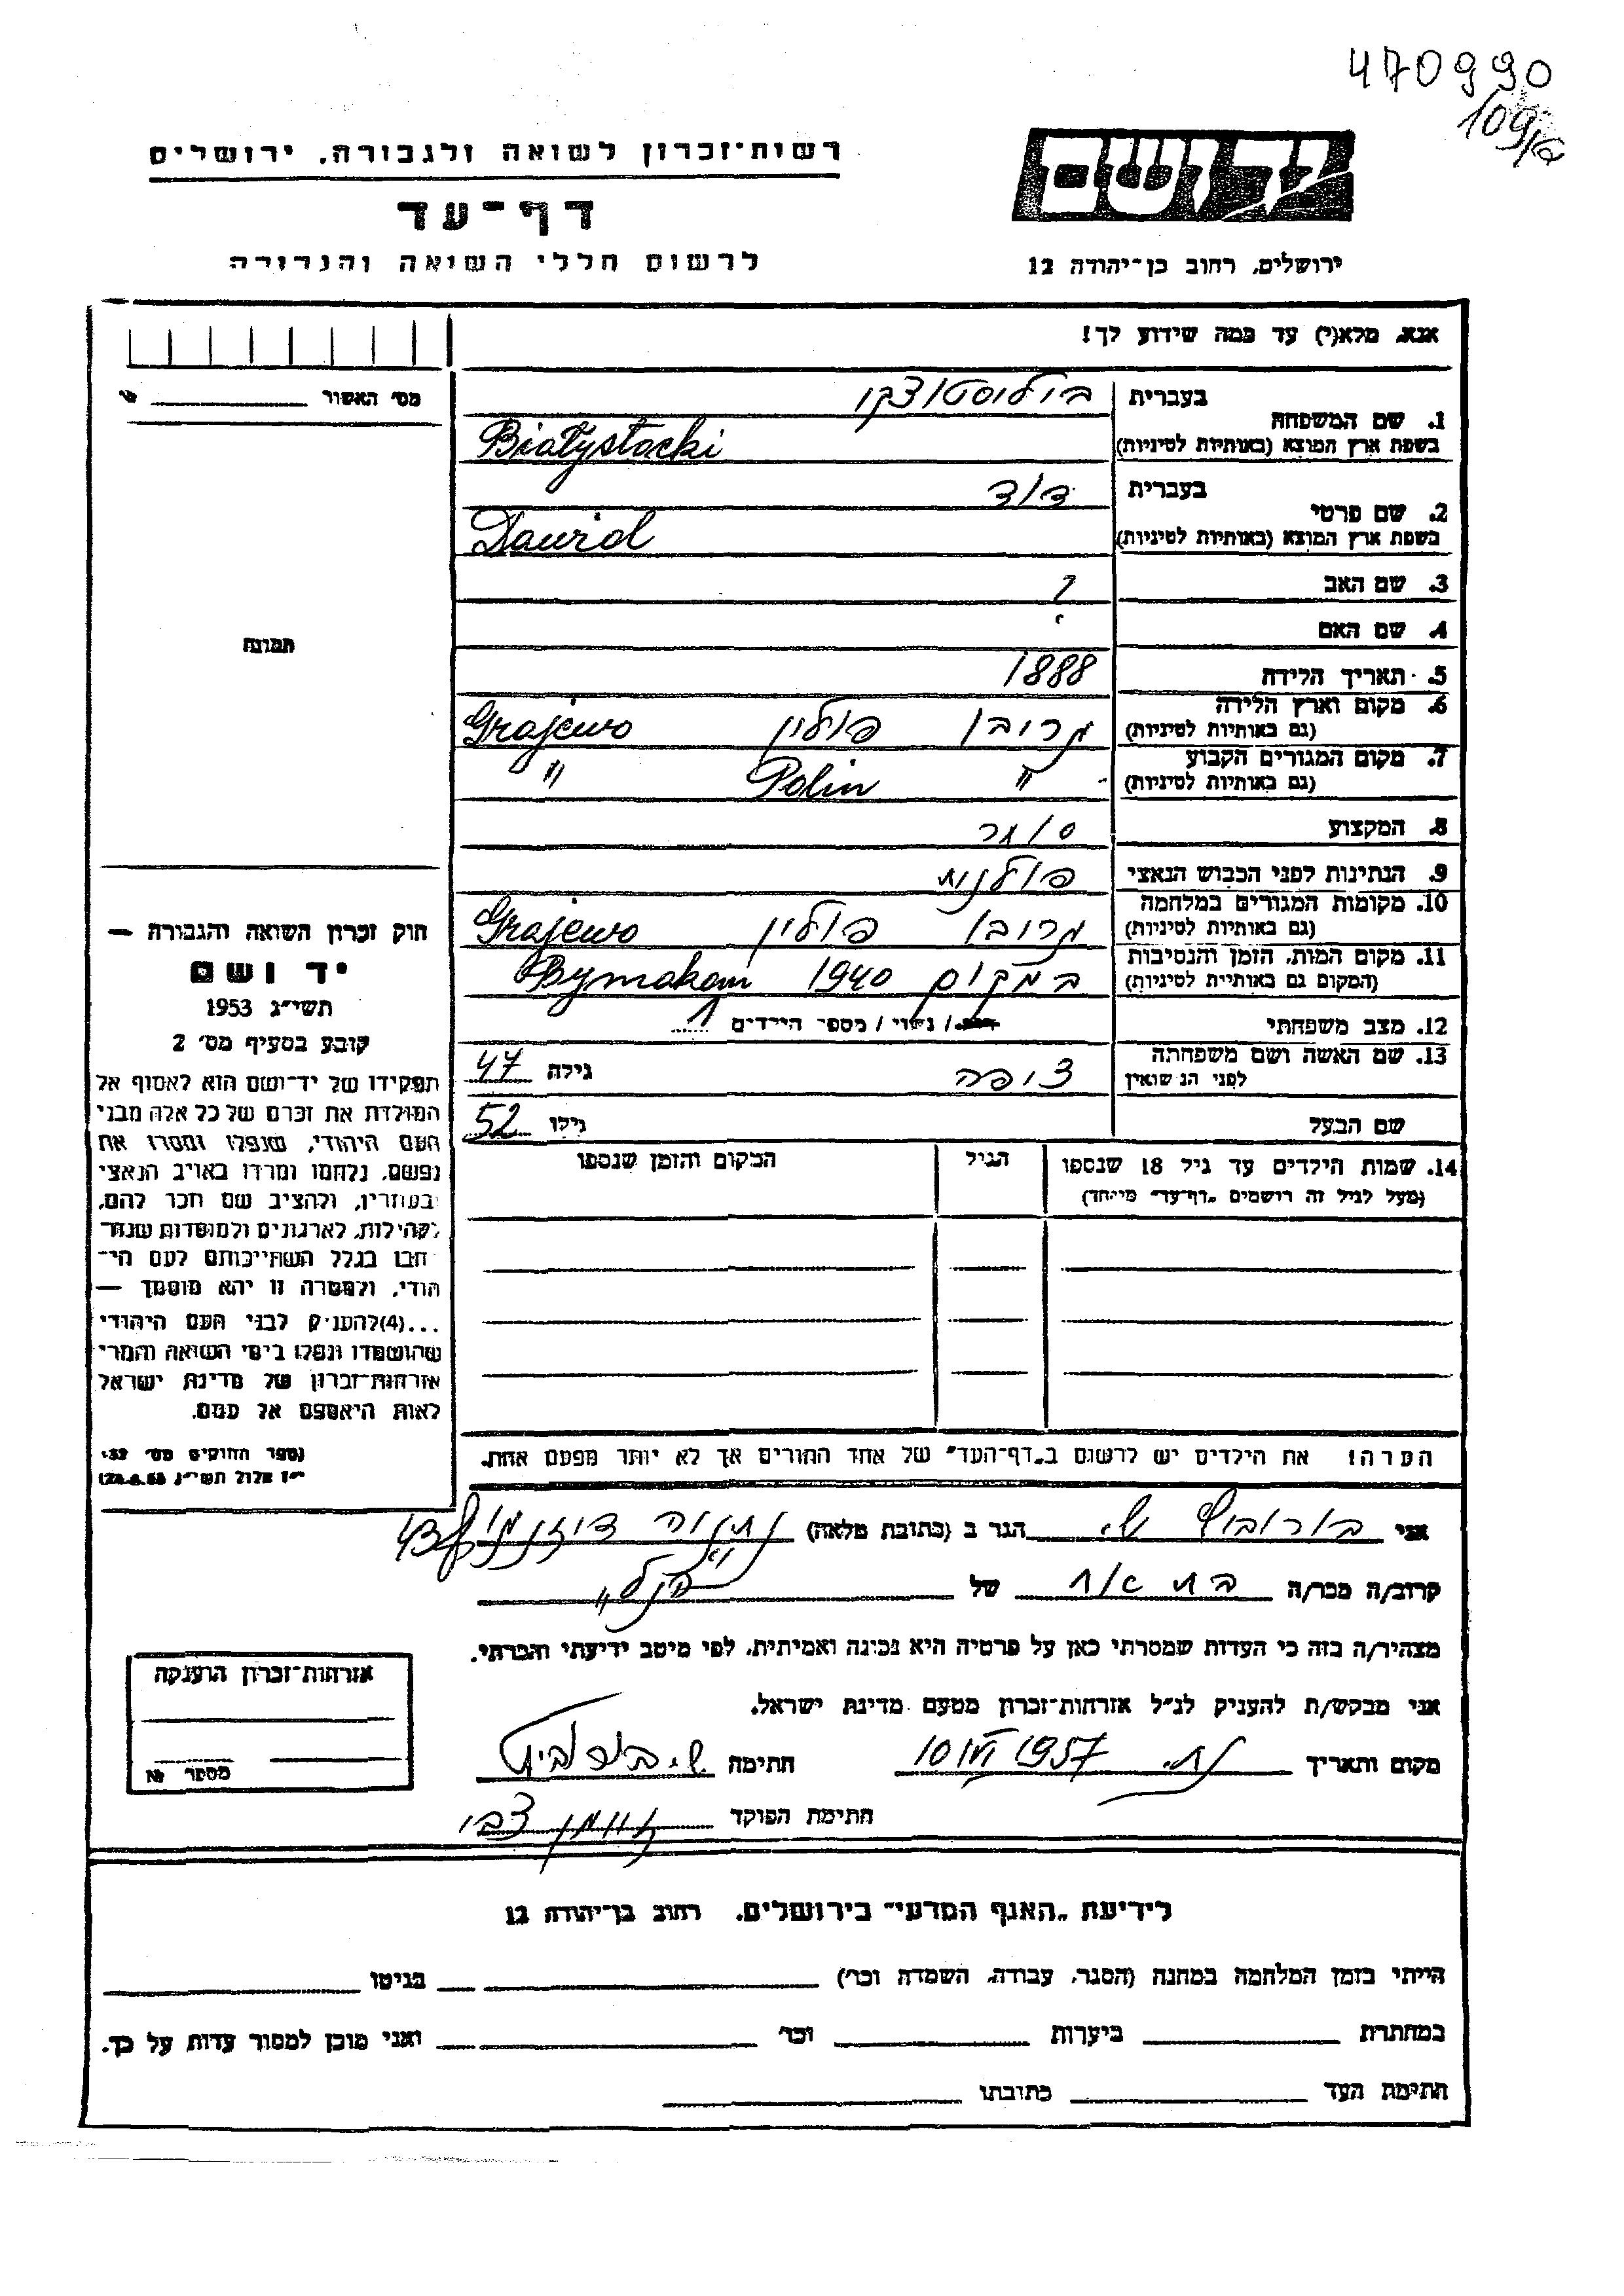 470990
109/6
רשות־זכרון לשואה ולגבורה, ירושלים
יד ושם
דף־עד
לרשום חללי השואה והגבורה
ירושלים, רחוב בן־יהודה 12
אנא, מלא(י) עד כמה שידוע לך!
מס׳ האשור
1. שם המשפחה
בעברית ביאליסטוצקי
בשפת ארץ המוצא (באותיות לטיניות) Białystocki
2. שם פרטי
בעברית דוד
בשפת ארץ המוצא (באותיות לטיניות) Dawid
3. שם האב ?
4. שם האם
5. תאריך הלידה 1888
6. מקום וארץ הלידה
(גם באותיות לטיניות) פולין Grajewo
7. מקום המגורים הקבוע
(גם באותיות לטיניות) " Polin "
8. המקצוע סוחר
9. הנתינות לפני הכבוש הנאצי פולנית
10. מקומות המגורים במלחמה
(גם באותיות לטיניות) פולין Grajewo
11. מקום המות, הזמן והנסיבות
(המקום גם באותיות לטיניות) במקום 1940 Bymakom
12. מצב משפחתי רווק / נשוי / מספר הילדים 1
13. שם האשה ושם משפחתה
לפני הנשואין ציפה גילה 47
שם הבעל גילו 52
14. שמות הילדים עד גיל 18 שנספו
(מעל לגיל זה רושמים „דף־עד״ מיוחד)
הגיל
המקום והזמן שנספו
הערה! את הילדים יש לרשום ב„דף־העד״ של אחד ההורים אך לא יותר מפעם אחת.
תמונה
חוק זכרון השואה והגבורה —
יד ושם
תשי״ג 1953
קובע בסעיף מס׳ 2
תפקידו של יד־ושם הוא לאסוף אל
המולדת את זכרם של כל אלה מבני
העם היהודי, שנפלו ומסרו את
נפשם, נלחמו ומרדו באויב הנאצי
ובעוזריו, ולהציב שם וזכר להם,
לקהילות, לארגונים ולמוסדות שנח־
רבו בגלל השתייכותם לעם הי־
הודי, ולמטרה זו יהא מוסמך —
...(4) להעניק לבני העם היהודי
שהושמדו ונפלו בימי השואה והמרי
אזרחות־זכרון של מדינת ישראל
לאות היאספם אל עמם.
(ספר החוקים מס׳ 132,
י״ז אלול תשי״ג 28.8.53)
אני הגר ב (כתובת מלאה) נתניה
קרוב/ה מכר/ה בת אח של
מצהיר/ה בזה כי העדות שמסרתי כאן על פרטיה היא נכונה ואמיתית, לפי מיטב ידיעתי והכרתי.
אני מבקש/ת להעניק לנ״ל אזרחות־זכרון מטעם מדינת ישראל.
מקום ותאריך 10 VI 1957 חתימה
חתימת הפוקד צבי
אזרחות־זכרון הוענקה
מספר №
לידיעת „האגף המדעי״ בירושלים, רחוב בן־יהודה 12
הייתי בזמן המלחמה במחנה (הסגר, עבודה, השמדה וכו׳) בגיטו
במחתרת ביערות וכו׳ ואני מוכן למסור עדות על כך.
חתימת העד כתובתו